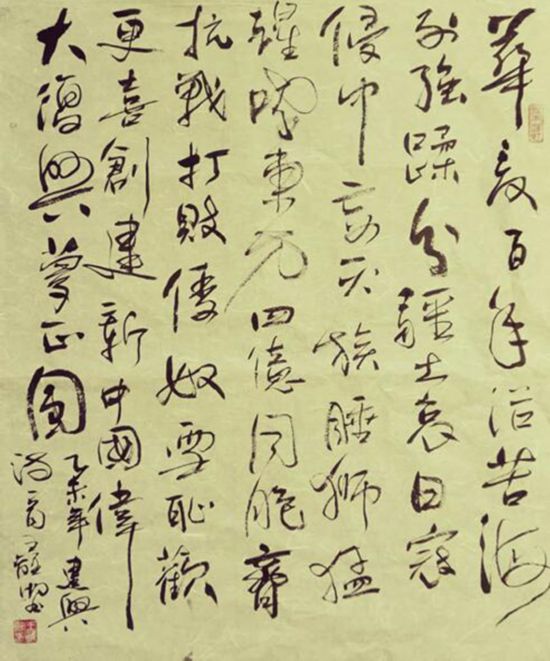 華夏百年沿苦海
列強蹂分疆土哀日寇
侵中妄灭族睡獅猛
醒吼東方四億同胞齊
抗戰打敗倭奴雪恥歡
更喜創建新中國偉
大復興夢正圓
乙未年建興
詩